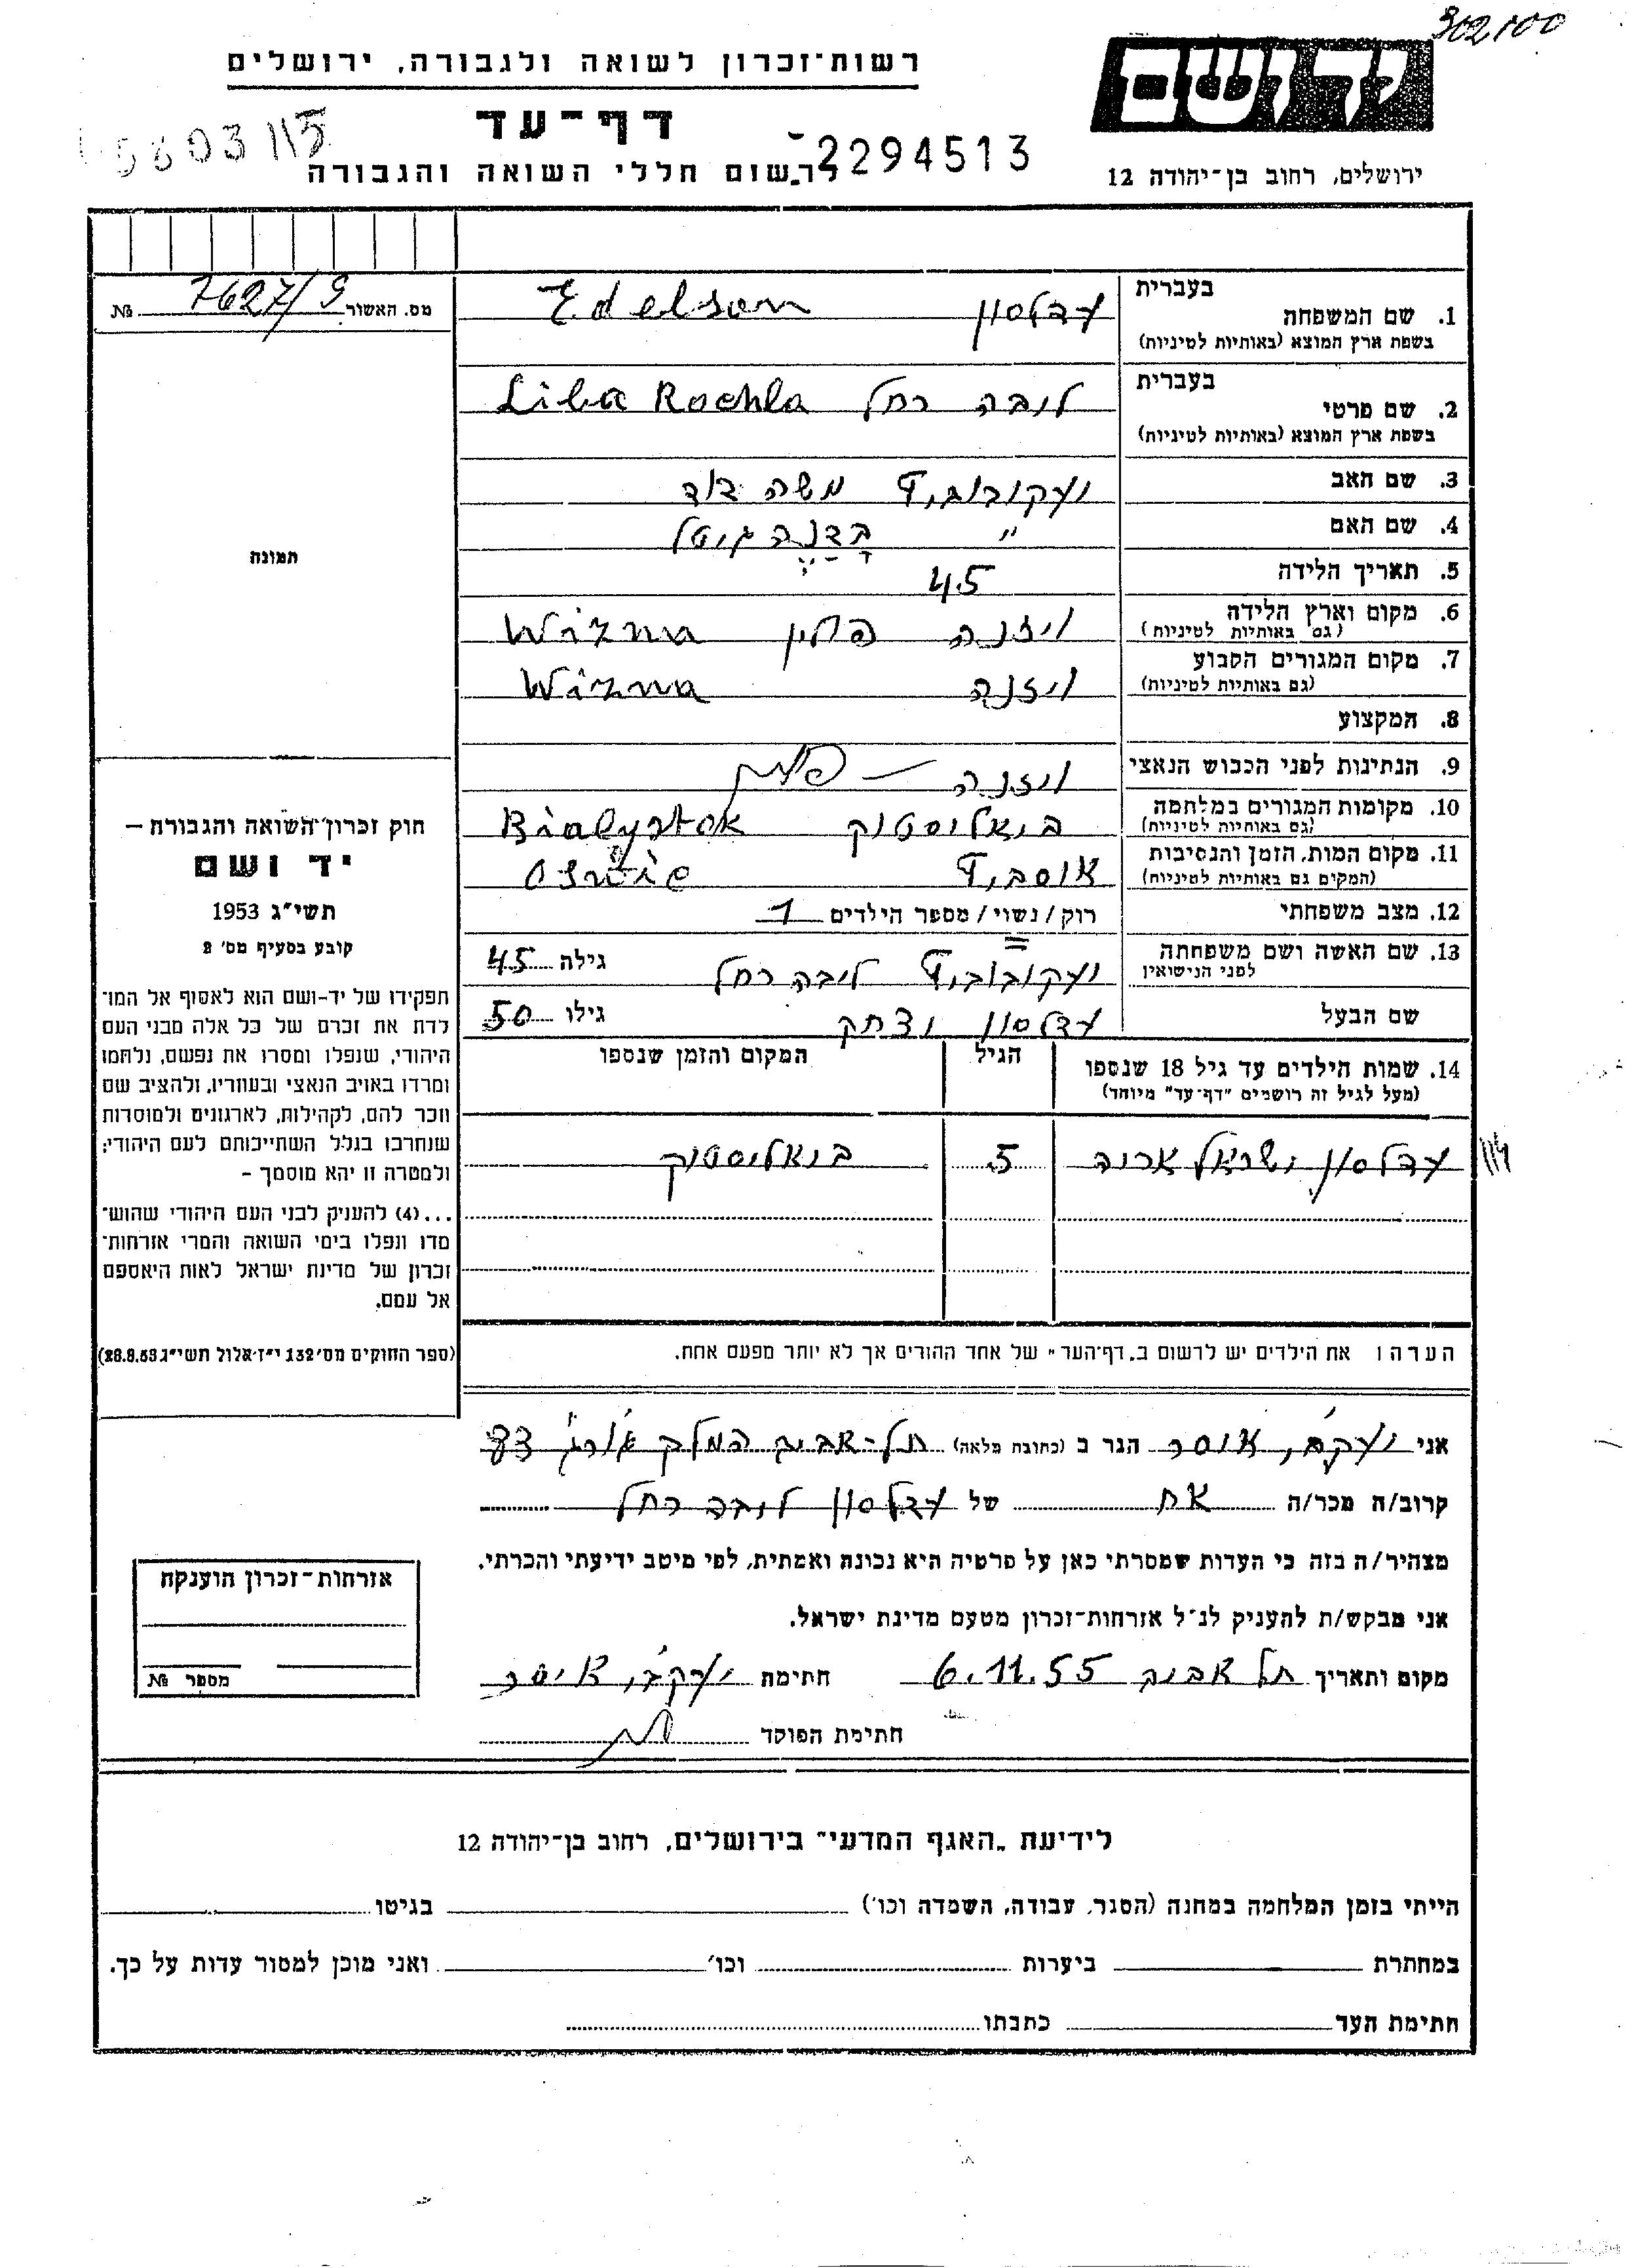 302100
ידושם
ירושלים, רחוב בן־יהודה 12
רשות־זכרון לשואה ולגבורה, ירושלים
דף־עד
2294513
לרשום חללי השואה והגבורה
מס. האשור 7627/9 №
תמונה
בעברית
1. שם המשפחה עדלסון Edelson
בשפת ארץ המוצא (באותיות לטיניות)
בעברית
2. שם פרטי ליבה רחל Liba Rochla
בשפת ארץ המוצא (באותיות לטיניות)
3. שם האב יעקובוביץ משה דוד
4. שם האם " גיטל
5. תאריך הלידה 45
6. מקום וארץ הלידה ויזנה פולין Wizna
(גם באותיות לטיניות)
7. מקום המגורים הקבוע ויזנה Wizna
(גם באותיות לטיניות)
8. המקצוע
9. הנתינות לפני הכבוש הנאצי ויזנה — פולין
10. מקומות המגורים במלחמה ביאליסטוק Bialystok
(גם באותיות לטיניות)
11. מקום המות, הזמן והנסיבות
(המקום גם באותיות לטיניות)
12. מצב משפחתי רוק/נשוי/מספר הילדים 1
13. שם האשה ושם משפחתה יעקובוביץ ליבה רחל גילה 45
לפני הנישואין
שם הבעל עדלסון יצחק גילו 50
14. שמות הילדים עד גיל 18 שנספו הגיל המקום והזמן שנספו
(מעל לגיל זה רושמים "דף־עד" מיוחד)
עדלסון ישראל אריה 5 ביאליסטוק
הערה: את הילדים יש לרשום ב„דף־העד" של אחד ההורים אך לא יותר מפעם אחת.
חוק זכרון־השואה והגבורה –
יד ושם
תשי"ג 1953
קובע בסעיף מס' 2
תפקידו של יד-ושם הוא לאסוף אל המו־
לדת את זכרם של כל אלה מבני העם
היהודי, שנפלו ומסרו את נפשם, נלחמו
ומרדו באויב הנאצי ובעוזריו, ולהציב שם
וזכר להם, לקהילות, לארגונים ולמוסדות
שנחרבו בגלל השתייכותם לעם היהודי;
ולמטרה זו יהא מוסמך –
...(4) להעניק לבני העם היהודי שהוש־
מדו ונפלו בימי השואה והמרי אזרחות־
זכרון של מדינת ישראל לאות היאספם
אל עמם.
(ספר החוקים מס' 132 י"ז אלול תשי"ג 28.8.53)
אני יעקבי איסר הגר ב (כתובת מלאה) תל-אביב המלך ג'ורג' 83
קרוב/ה מכר/ה אח של עדלסון ליבה רחל
מצהיר/ה בזה כי העדות שמסרתי כאן על פרטיה היא נכונה ואמתית, לפי מיטב ידיעתי והכרתי.
אני מבקש/ת להעניק לנ"ל אזרחות־זכרון מטעם מדינת ישראל.
מקום ותאריך תל אביב 6.11.55 חתימת יעקבי איסר
חתימת הפוקד
אזרחות־זכרון הוענקה
מספר №
לידיעת „האגף המדעי" בירושלים, רחוב בן־יהודה 12
הייתי בזמן המלחמה במחנה (הסגר, עבודה, השמדה וכו') בגיטו
במחתרת ביערות וכו' ואני מוכן למסור עדות על כך.
חתימת העד כתבתו